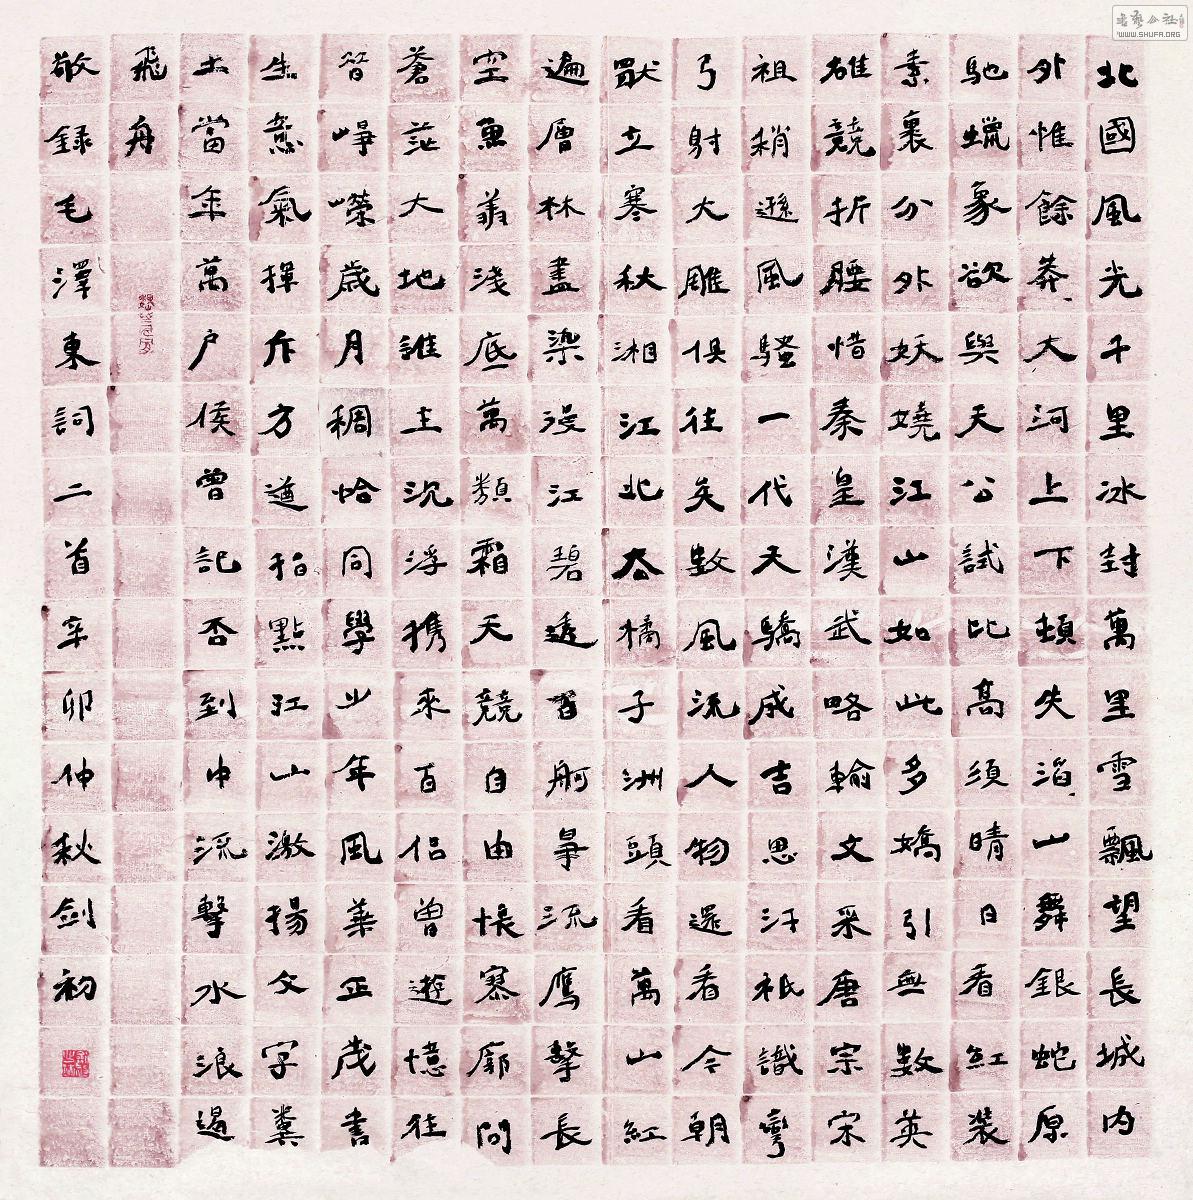 北國風光千里冰封萬里雪飄望長城内
外惟餘莽、大河上下頓失滔、山舞銀蛇原
馳蠟象欲與天公試比高須晴日看紅裝
素裹分外妖嬈江山如此多嬌引無數英
雄競折腰惜秦皇漢武略輸文采唐宗宋
祖稍遜風騷一代天驕成吉思汗祇識彎
弓射大雕俱往矣數風流人物還看今朝
獨立寒秋湘江北去橘子洲頭看萬山紅
遍層林盡染漫江碧透百舸爭流鷹擊長
空魚翔淺底萬類霜天競自由悵寥廓問
蒼茫大地誰主沉浮携來百侣曾遊憶往
昔崢嶸歲月稠恰同學少年風華正茂書
生意氣揮斥方遒指點江山激揚文字糞
土當年萬户侯曾記否到中流擊水浪遏
飛舟
敬録毛澤東詞二首辛卯仲秋劍初
書藝公社
WWW.SHUFA.ORG